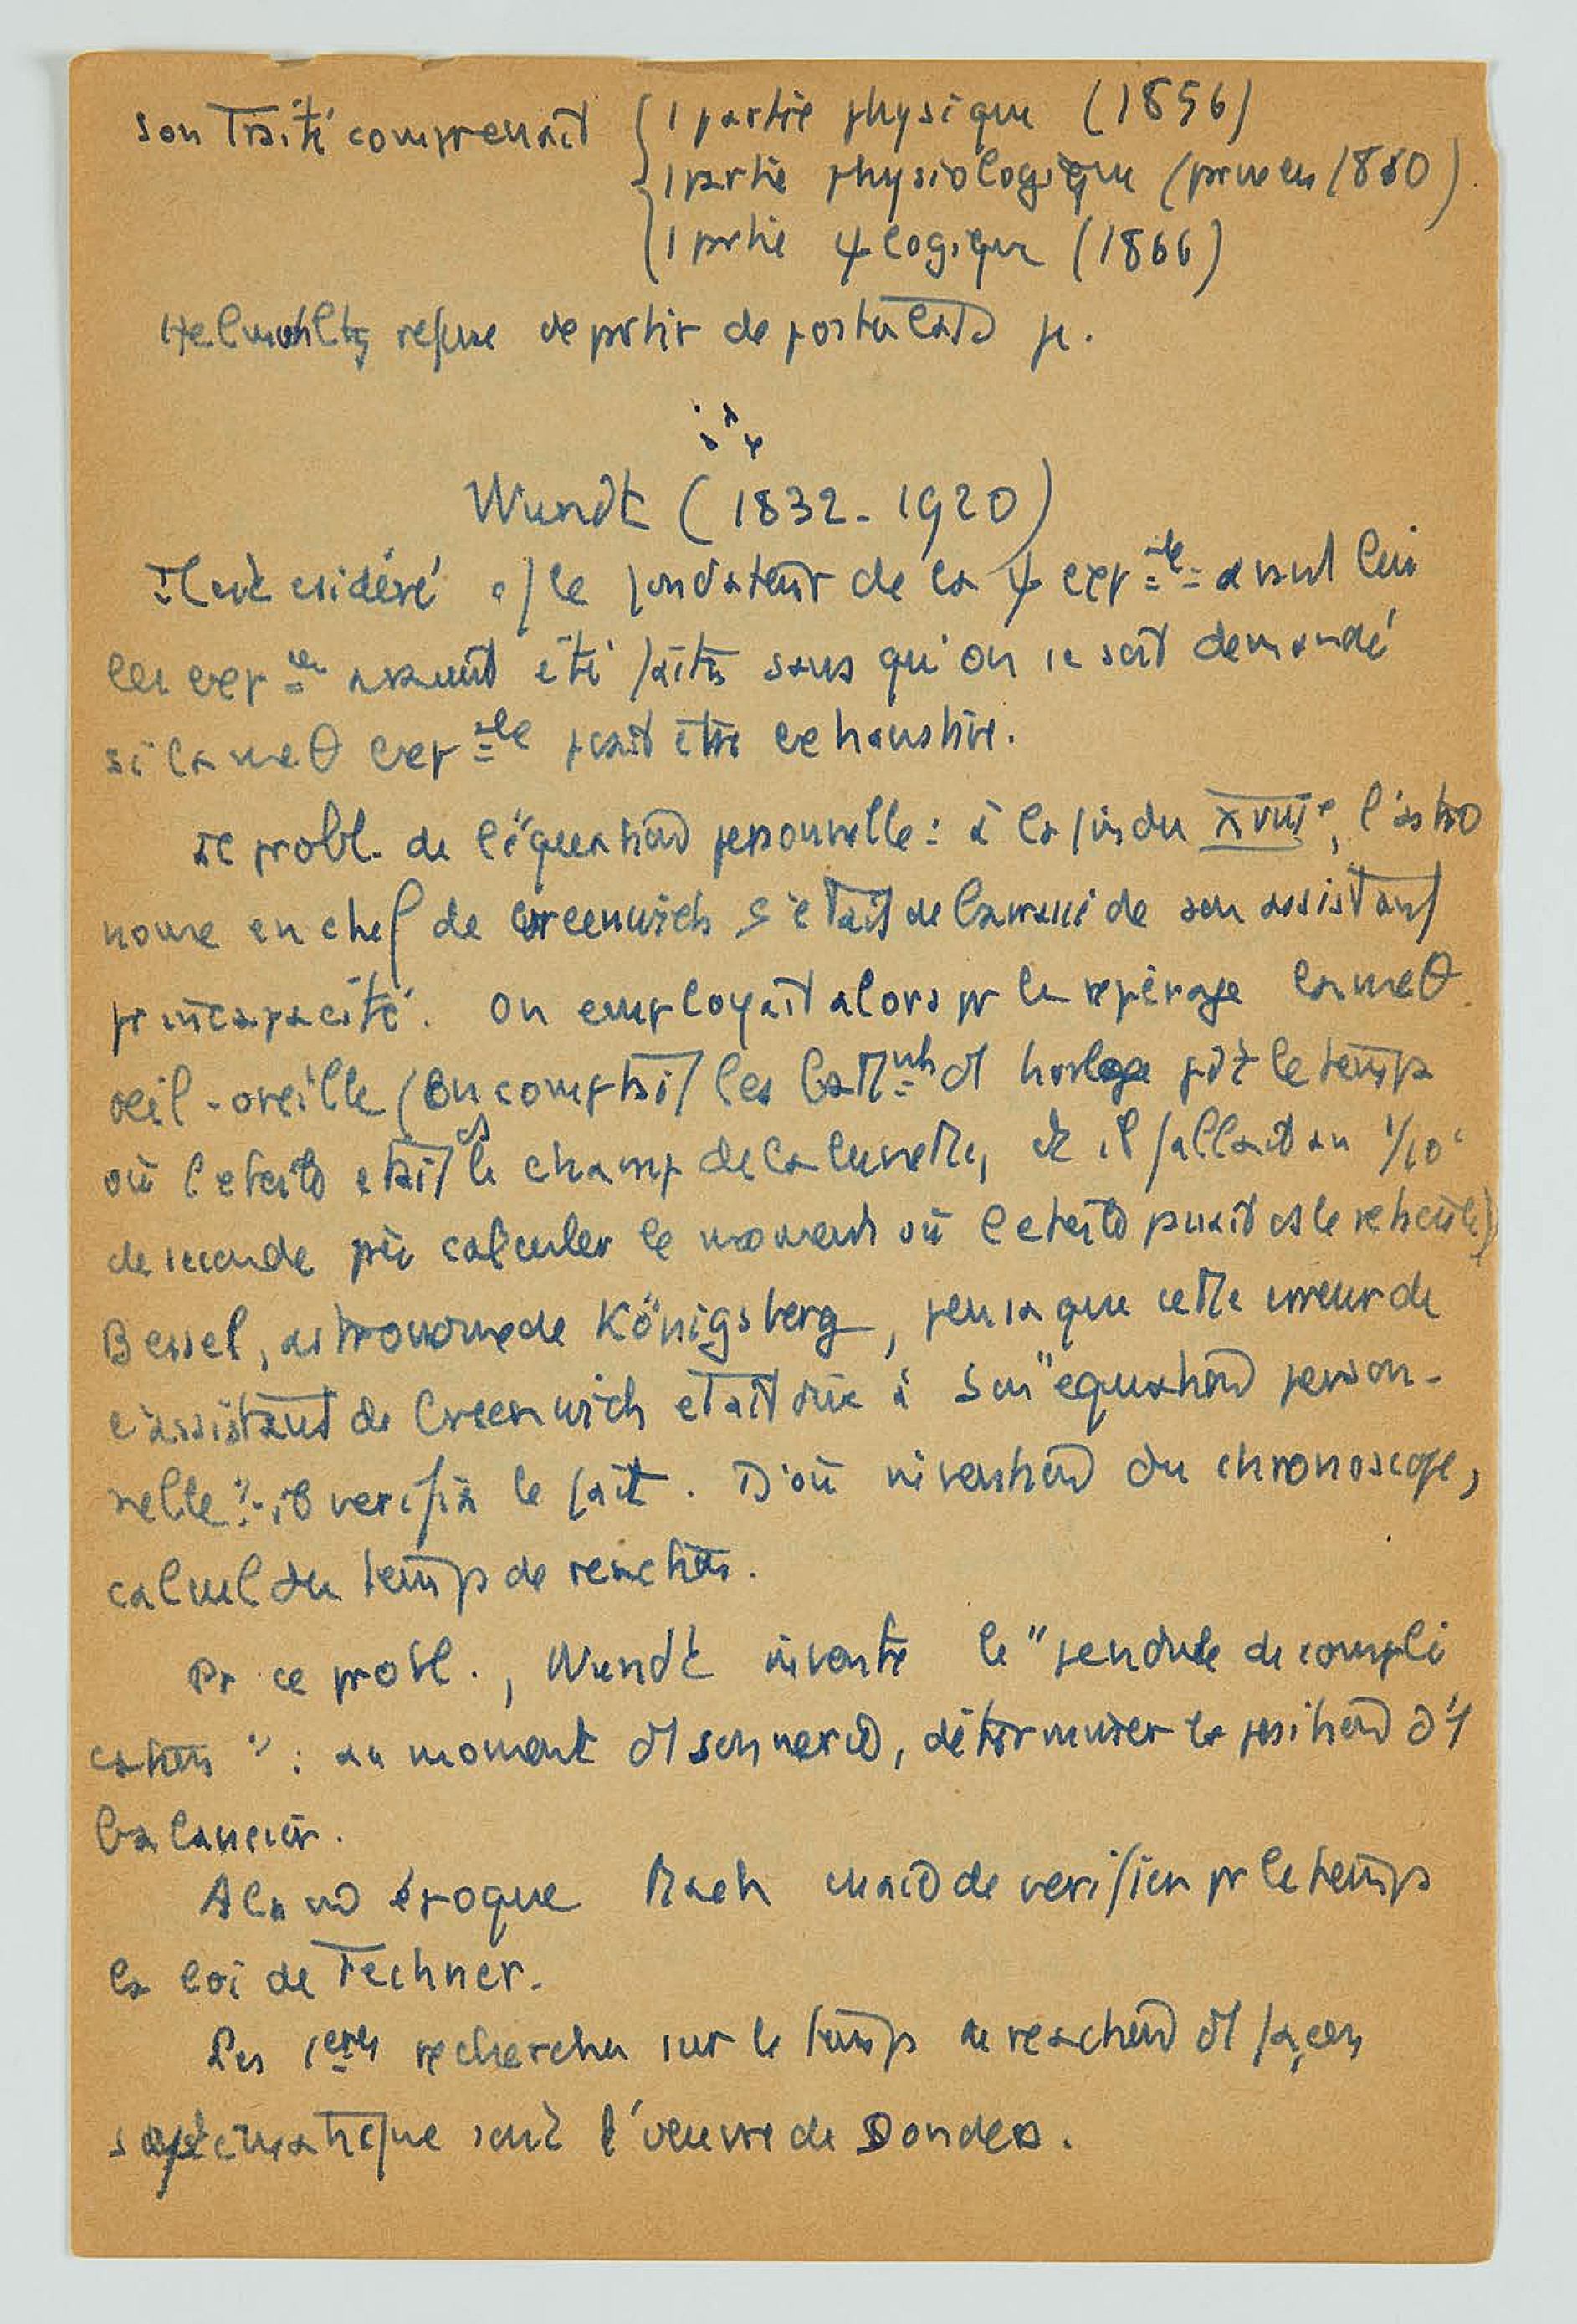 son Traité comprenait { 1 partie physique (1856)
1 partie physiologique (parue en 1860)
1 partie ψ logique (1866)
Helmohltz refuse de partir de postulats
Wundt (1832-1920)
Il est csidéré c/ le fondateur de la ψ exp ale = avant lui
les exp ces avaient été faites sans qu'on se soit demandé
si la meθ exp ale pvait être exhaustive.
Le probl. de l'"équation personnelle : à la fin du XVIIIe, l'astro
nome en chef de Greenwich s'était débarrassé de son assistant
pr incapacité. On employait alors pr le repérage la meθ
oeil-oreille (On comptait les batt nts horloge pdt le temps
où l'étoile était ds le champ de la lunette, et il fallait au 1/10e
de seconde près calculer le moment où l'étoile passait ds le réticule)
Bessel, astronome de Königsberg, pensa que cette erreur de
l'assistant de Greenwich etait dûe à son "equation person-
nelle": il verifia le fait. D'où invention du chronoscope,
calcul du temps de reaction.
Pr ce probl., Wundt invente le "pendule de compli
cation" : au moment son vexé, déterminer la position d'1
balancier.
A la mê époque Mach essaie de verifier pr le temps
la loi de Fechner.
Les 1eres recherches sur le temps de reaction façon
systématique sont l'oeuvre de Donders.